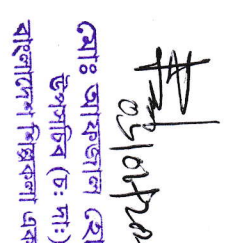 মোঃ আফজাল হো
উপসচিব (চঃ দাঃ)
বাংলাদেশ শিল্পকলা এক